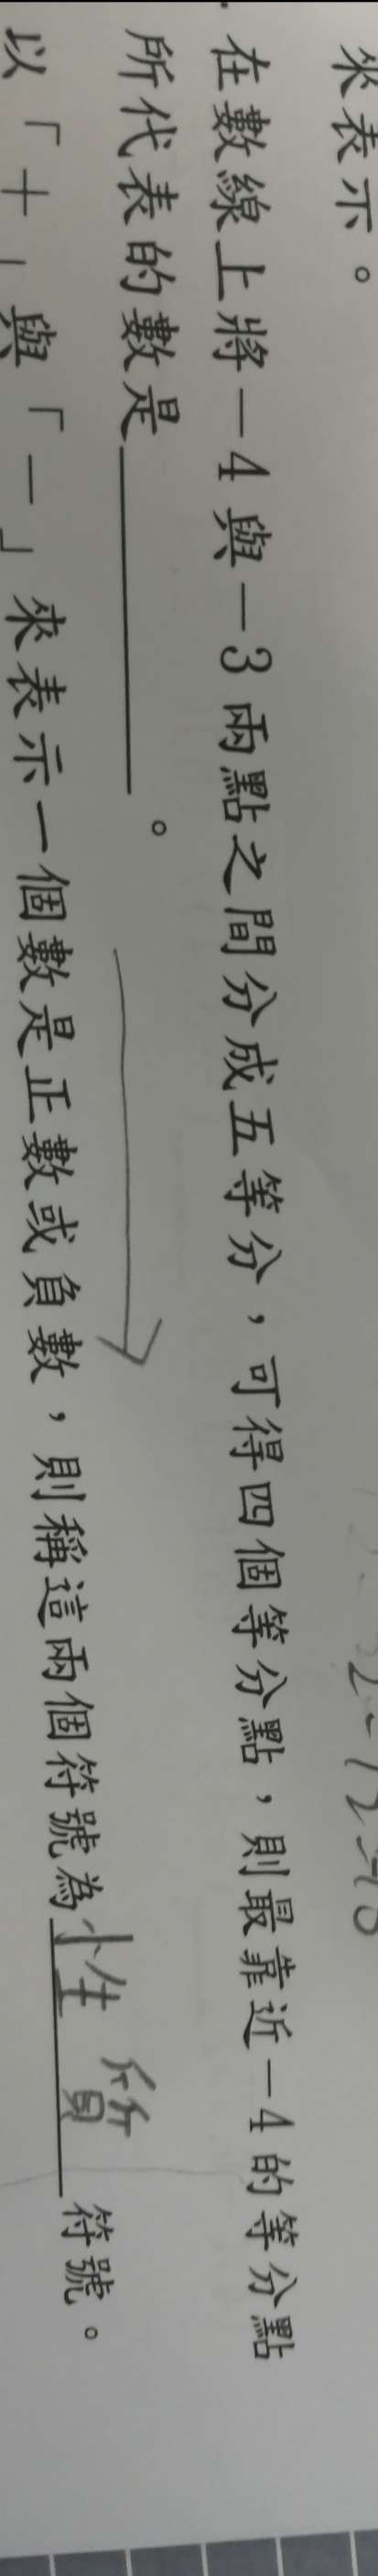 來表示。
在數線上將－4與－3兩點之間分成五等分，可得四個等分點，則最靠近－4的等分點
所代表的數是＿＿＿＿。
以「＋」與「－」來表示一個數是正數或負數，則稱這兩個符號為性質符號。